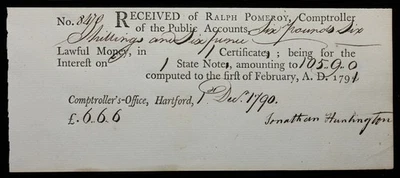 No. 848 RECEIVED OF RALPH POMEROY, Comptroller
of the Public Accounts, Six pounds Six
Shillings and Six pence
Lawful Money, in 1 Certificate ; being for the
Interest on 1 State Notes, amounting to 105.9.0
computed to the first of February, A. D. 1791
Comptroller's-Office, Hartford, 1st Decr. 1790.
£.6.6.6
Jonathan Huntington